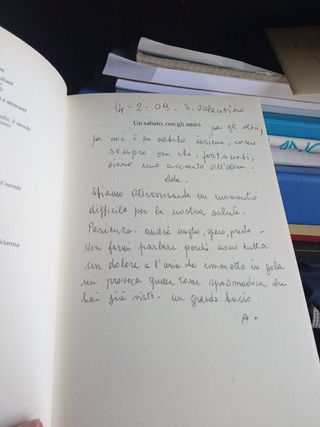 14-2-09- S. Valentino
Un sabato, con gli amici
per gli altri,
per noi è un sabato insieme, come
sempre ora che, fortunati,
siamo uno accanto all'altra.
Stiamo attraversando un momento
difficile per la nostra salute.
Pazienza. andrà meglio, spero, presto -
Non farmi parlare perché sono tutta
un dolore e l'aria che immetto in gola
mi provoca questa tosse spasmodica che
hai già visto - un grande bacio
A.
e stranieri
il mondo
il mondo